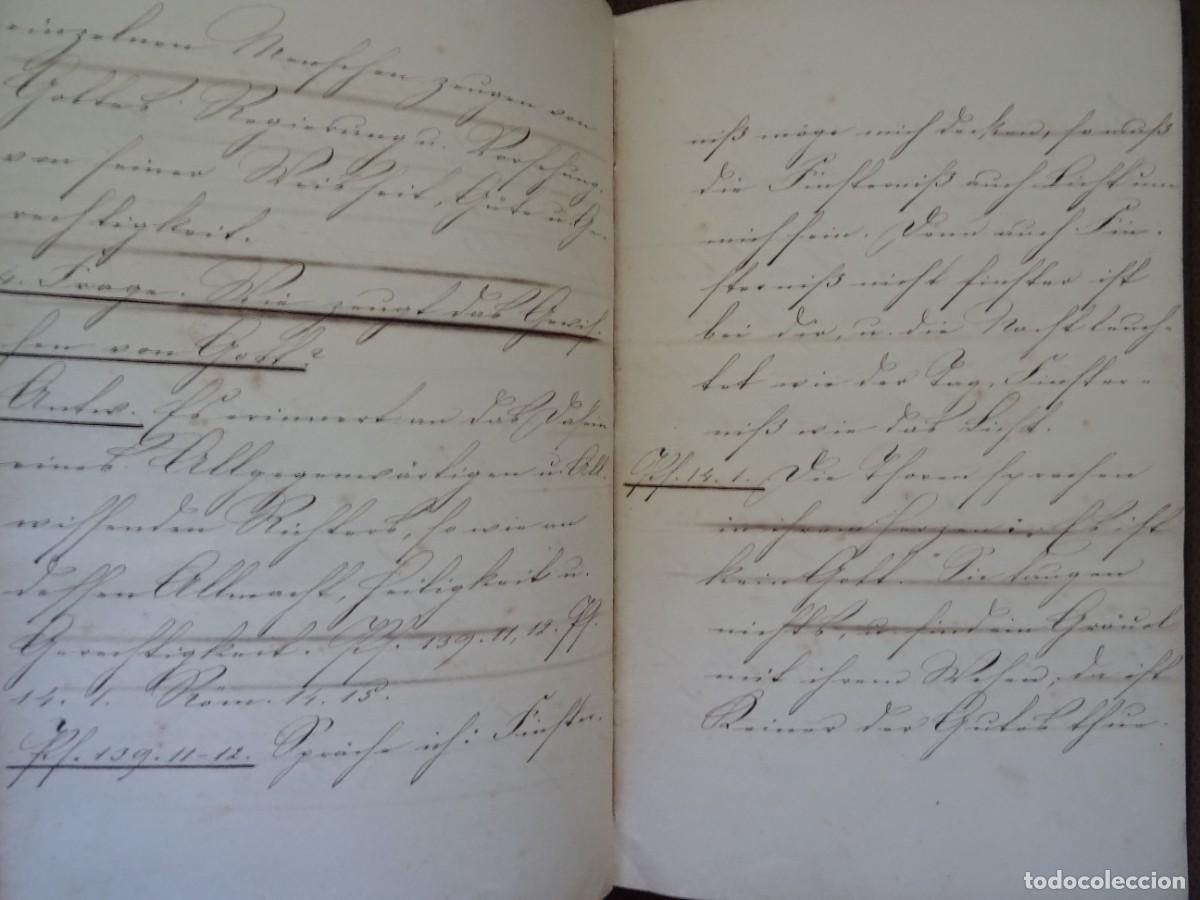 einzelnen Menschen zeugen von
Gottes Regierung u. Vorsehung.
von seiner Weisheit, Güte u. Ge-
rechtigkeit.
4. Frage. Wie zeugt das Gewis-
sen von Gott?
Antw. Es erinnert an das Dasein
eines Allgegenwärtigen u. All-
wissenden Richters, so wie an
dessen Allmacht, Heiligkeit u.
Gerechtigkeit. Ps. 139. 11, 12. Ps.
14. 1. Röm. 14. 15.
Ps. 139. 11-12. Spräche ich: Finster-
niß möge mich decken, so muß
die Finsterniß auch Licht um
mich sein. Denn auch Fin-
sterniß nicht finster ist
bei dir, u. die Nacht leuch-
tet wie der Tag, Finster-
niß wie das Licht.
Ps. 14. 1. Die Thoren sprechen
in ihrem Herzen: „Es ist
kein Gott.“ Sie taugen
nichts, u. sind ein Gräuel
mit ihrem Wesen; da ist
Keiner der Gutes thue.
todocoleccion